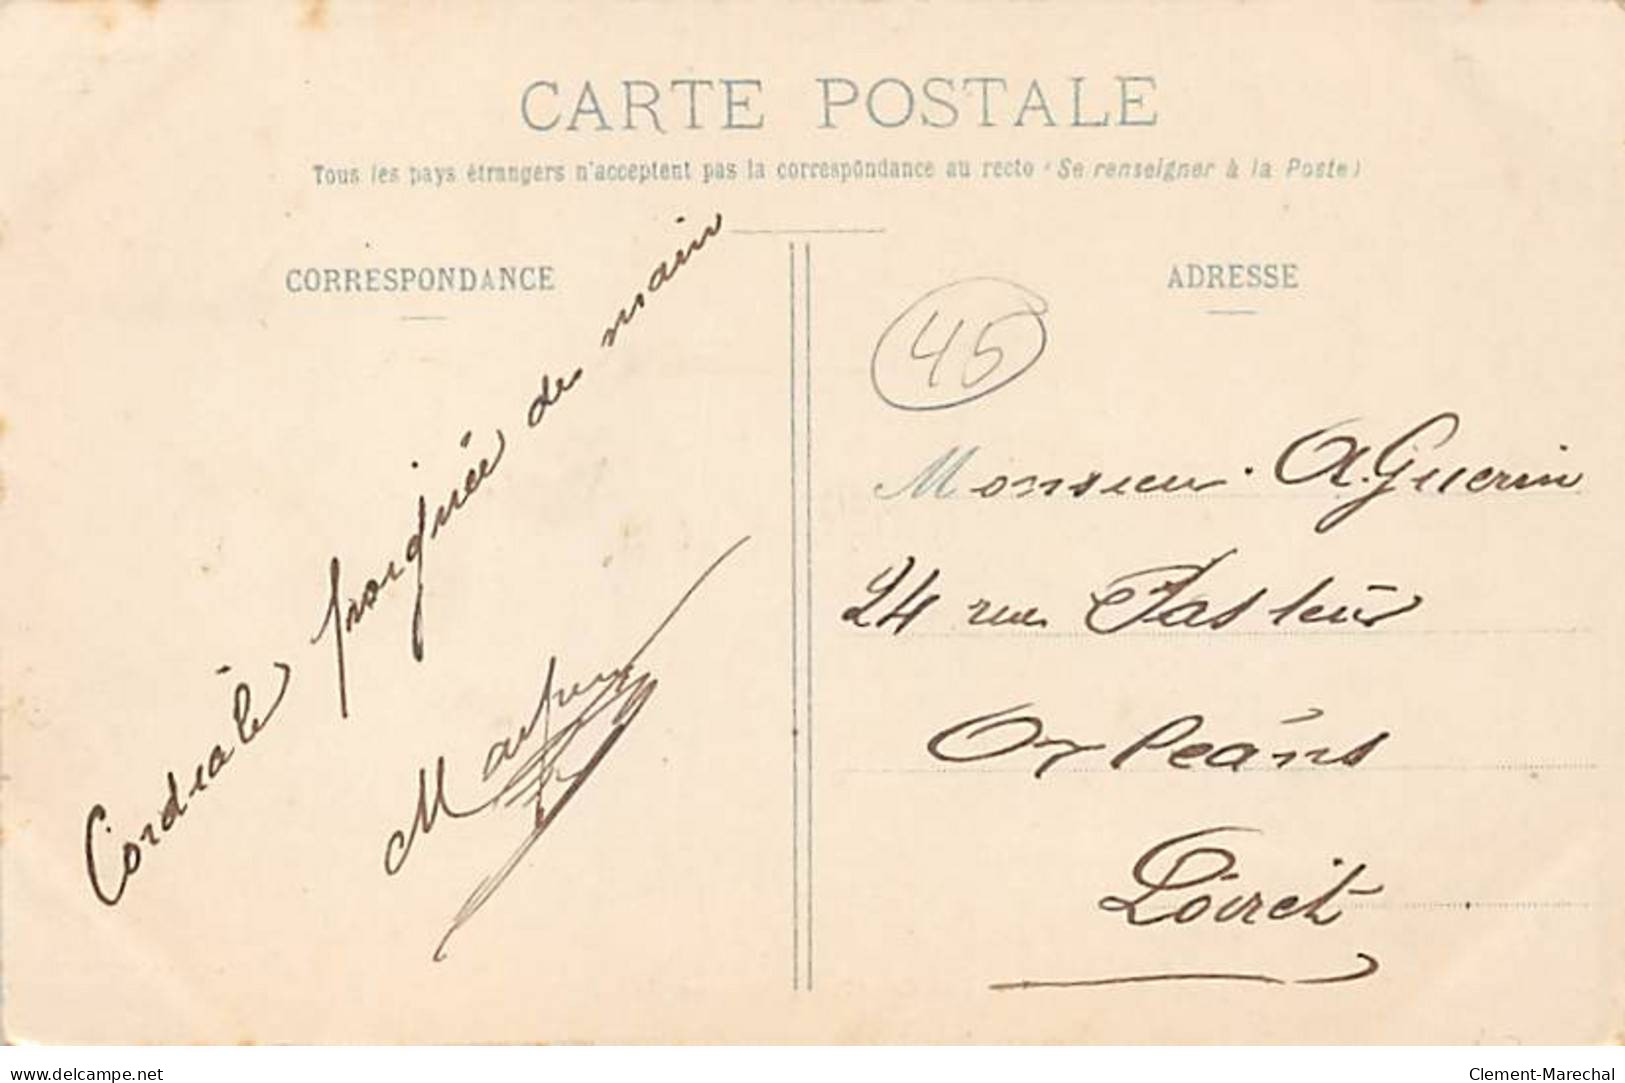 CARTE POSTALE
Tous les pays étrangers n'acceptent pas la correspondance au recto (Se renseigner à la Poste)
CORRESPONDANCE
ADRESSE
45
Cordiale poignée de main
Monsieur A. Guerin
24 rue Pasteur
Orléans
Loiret
www.delcampe.net
Clement-Marechal